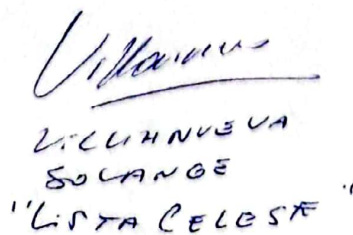 Villanueva
VILLANUEVA
SOLANGE
"LISTA CELESTE"